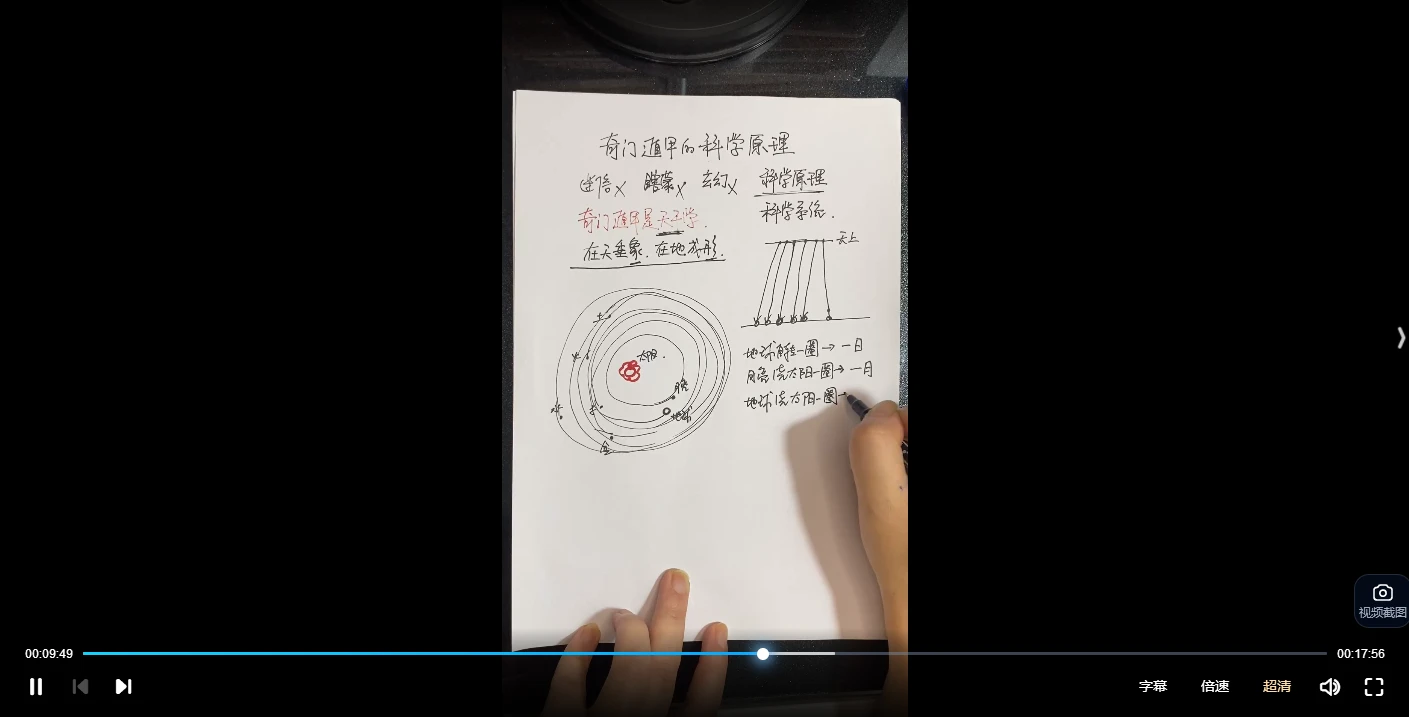 奇门遁甲的科学原理
迷信X 踏蒙X 玄幻X 科学原理
科学系统.
奇门遁甲是天文学.
在天垂象.在地成形.
天上
土
火
太阳.
月亮
水
地球
金
地球自转一圈→一日
月亮绕太阳一圈→一月
地球绕太阳一圈→
视频截图
00:09:49
00:17:56
字幕 倍速 超清